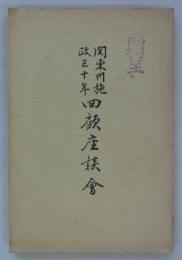 関東州施
政三十年
回顧座談會